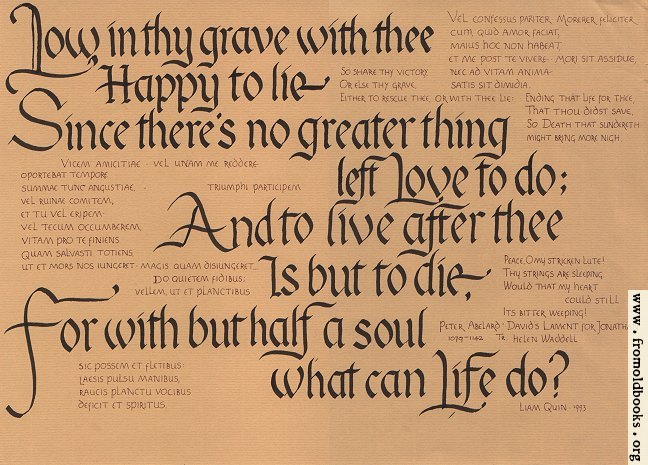 Low in thy grave with thee
Happy to lie
Since there's no greater thing
left Love to do;
And to live after thee
Is but to die,
For with but half a soul
what can Life do?
Vel confossus pariter Morerer feliciter
cum quid amor faciat,
maius hoc non habeat,
et me post te vivere · mori sit assidue,
nec ad vitam anima-
satis sit dimidia.
So share thy victory,
Or else thy grave,
Either to rescue thee, or with thee lie:
Ending that life for thee,
That thou didst save,
So Death that sundereth
might bring more nigh.
Vicem amicitiae · vel unam me reddere
oportebat tempore
summae tunc angustiae, ·
triumphi participem
vel ruinae comitem,
et tu vel eripem-
vel tecum occumberem,
vitam pro te finiens
quam salvasti totiens,
ut et mors nos iungeret · magis quam disiungeret
Do quietem fidibus;
vellem, ut et planctibus
sic possem et fletibus:
laesis pulsu manibus,
raucis planctu vocibus
deficit et spiritus.
Peace, O my stricken lute!
Thy strings are sleeping.
Would that my heart
could still
Its bitter weeping!
Peter Abelard · David's Lament for Jonathan
1079-1142 Tr. Helen Waddell
Liam Quin · 1993
www.fromoldbooks.org